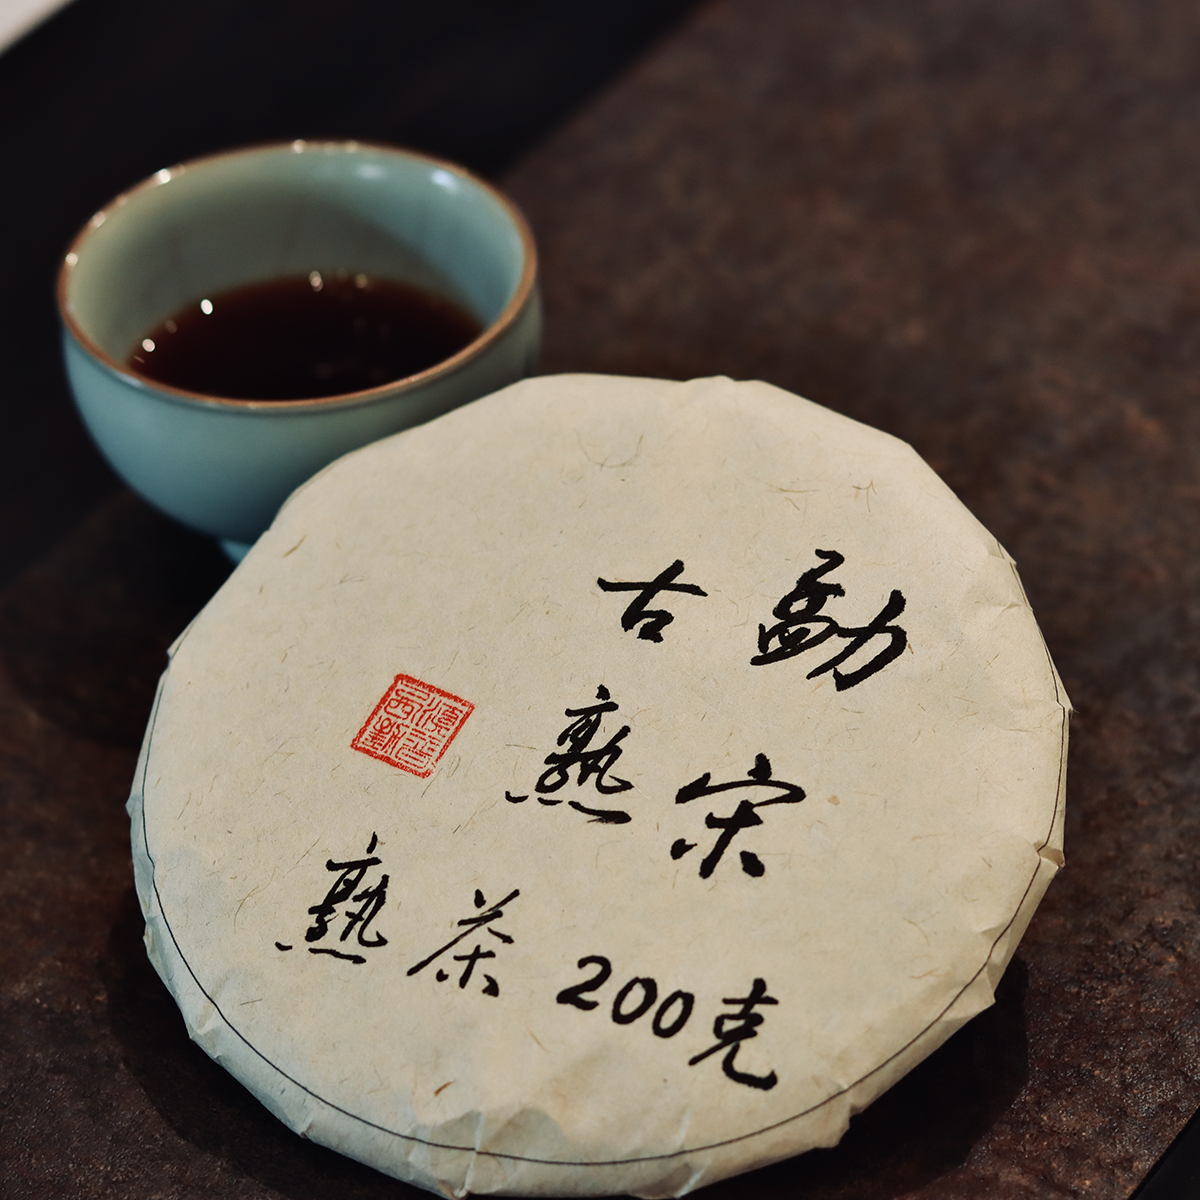 勐宋
古熟
熟茶 200克